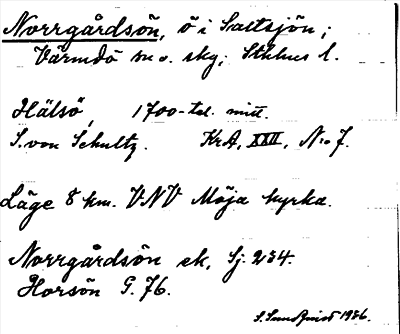 Norrgårdsön, ö i Saltsjön;
Värmdö m.o. skg; Sthlms l.
Hälsö, 1700-tal. mitt.
S. von Schultz. KrA, XXII, No 7.
Läge 8 km. VNV Möja kyrka.
Norrgårdsön ek, Sj. 234.
Horsön G. 76.
S. Sundqvist 1936.